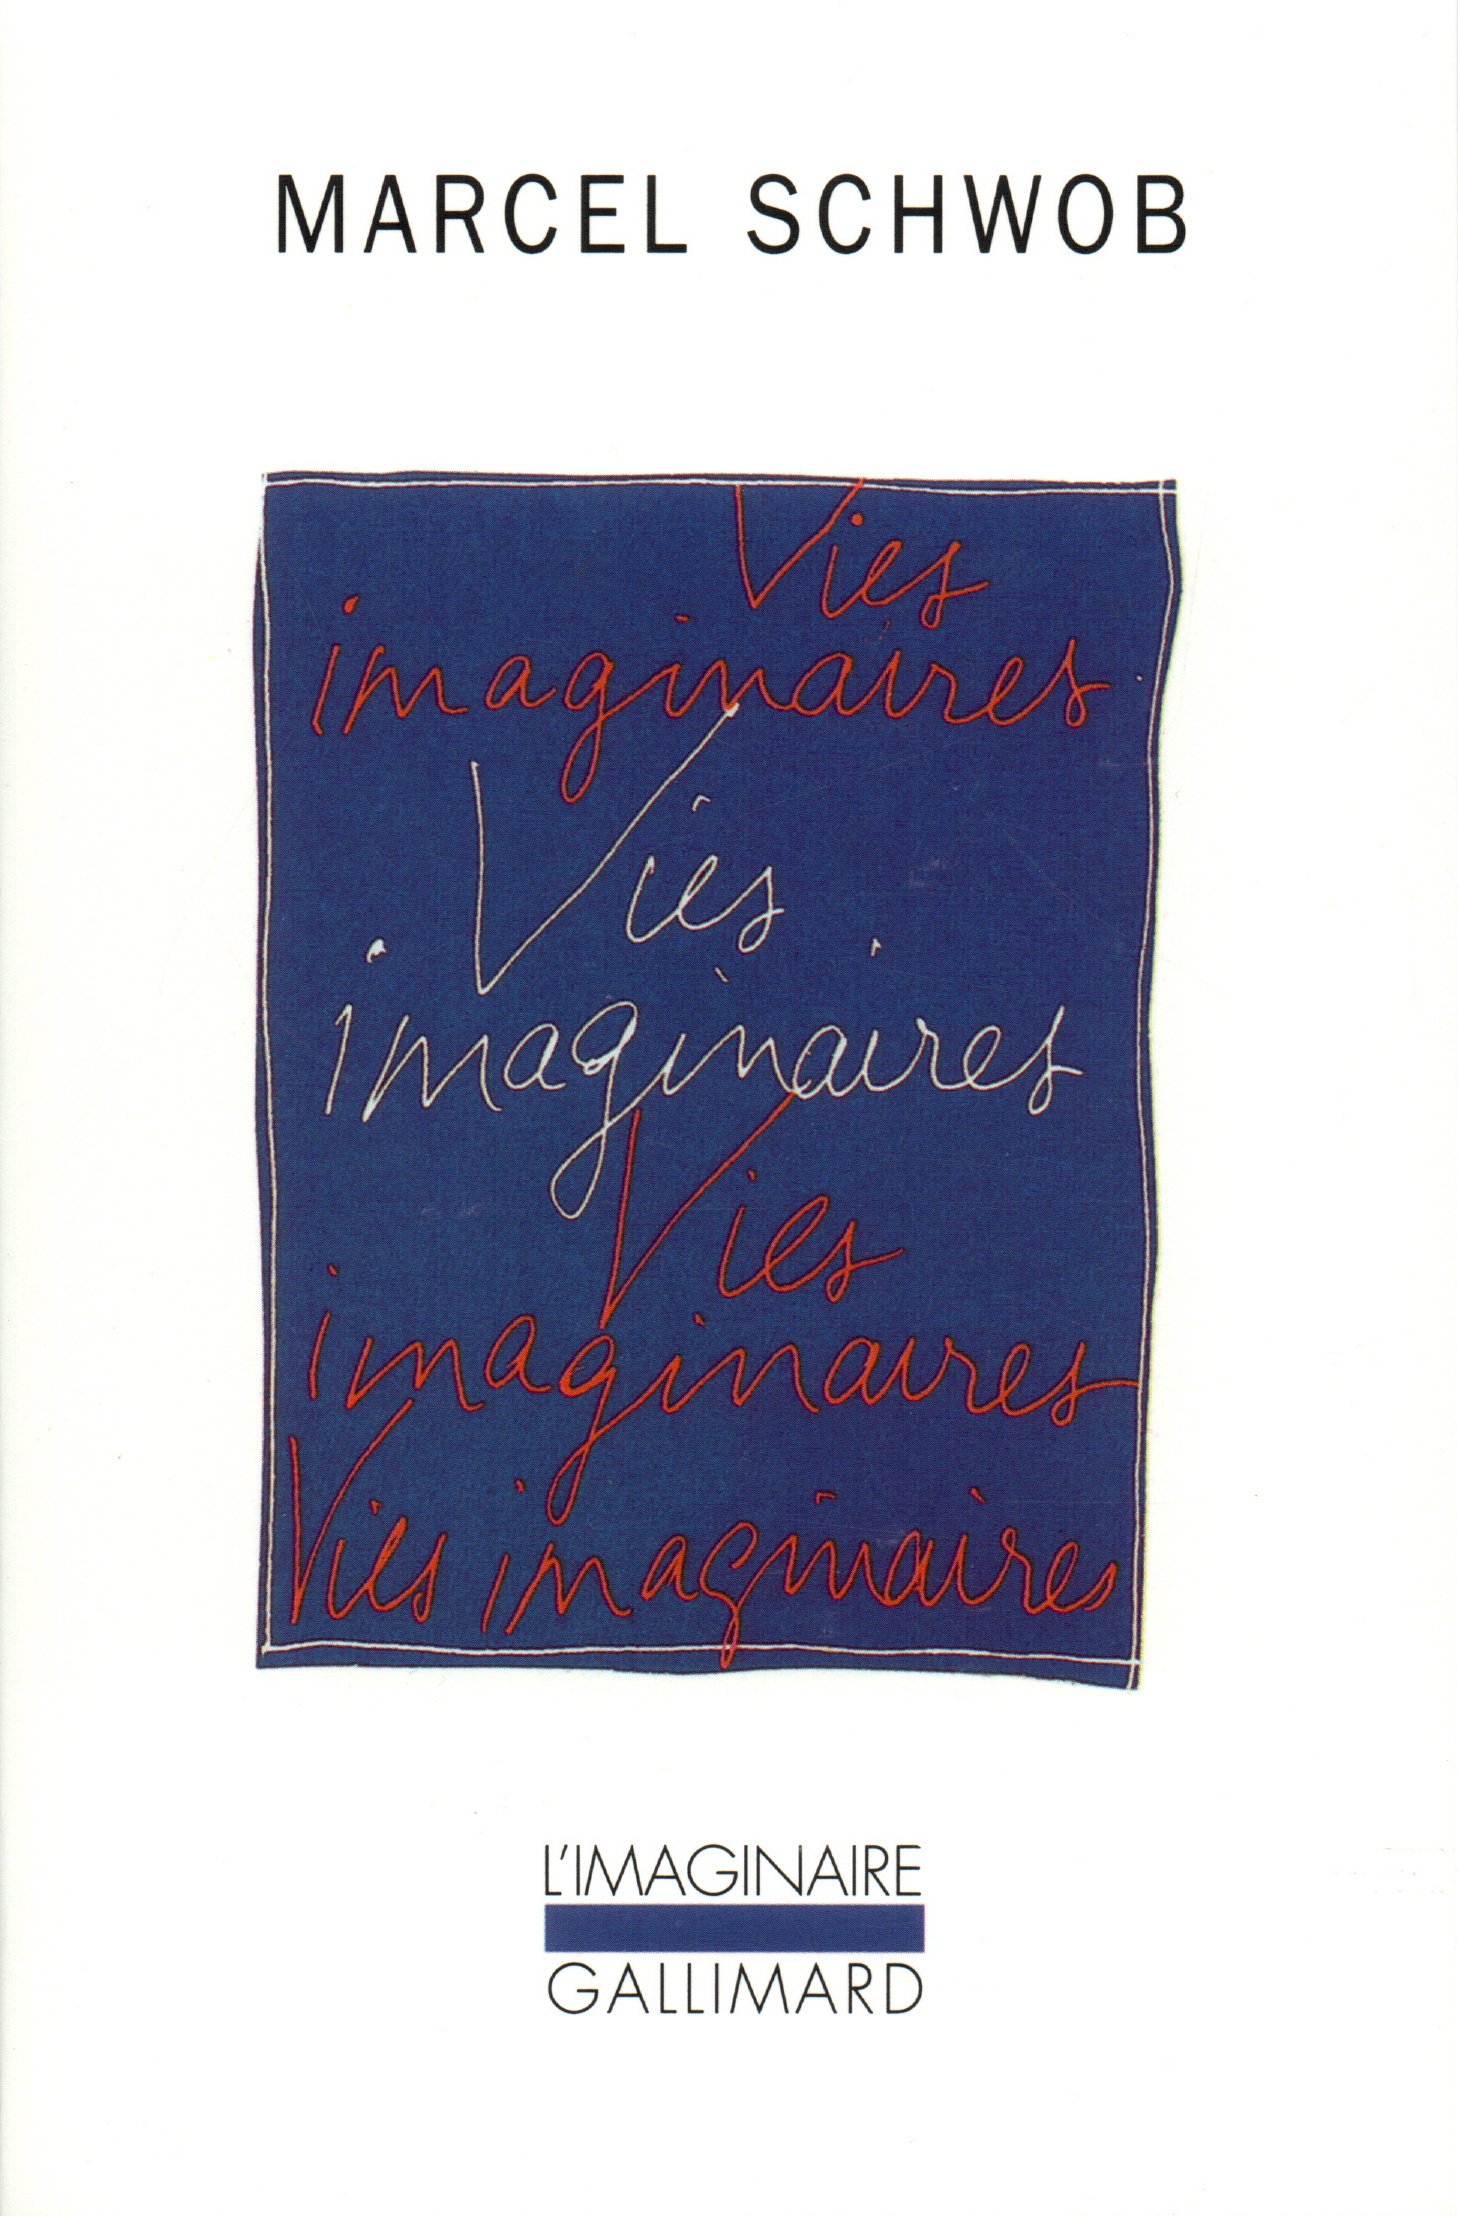 MARCEL SCHWOB
Vies
imaginaires
Vies
imaginaires
Vies
imaginaires
Vies imaginaires
L'IMAGINAIRE
GALLIMARD